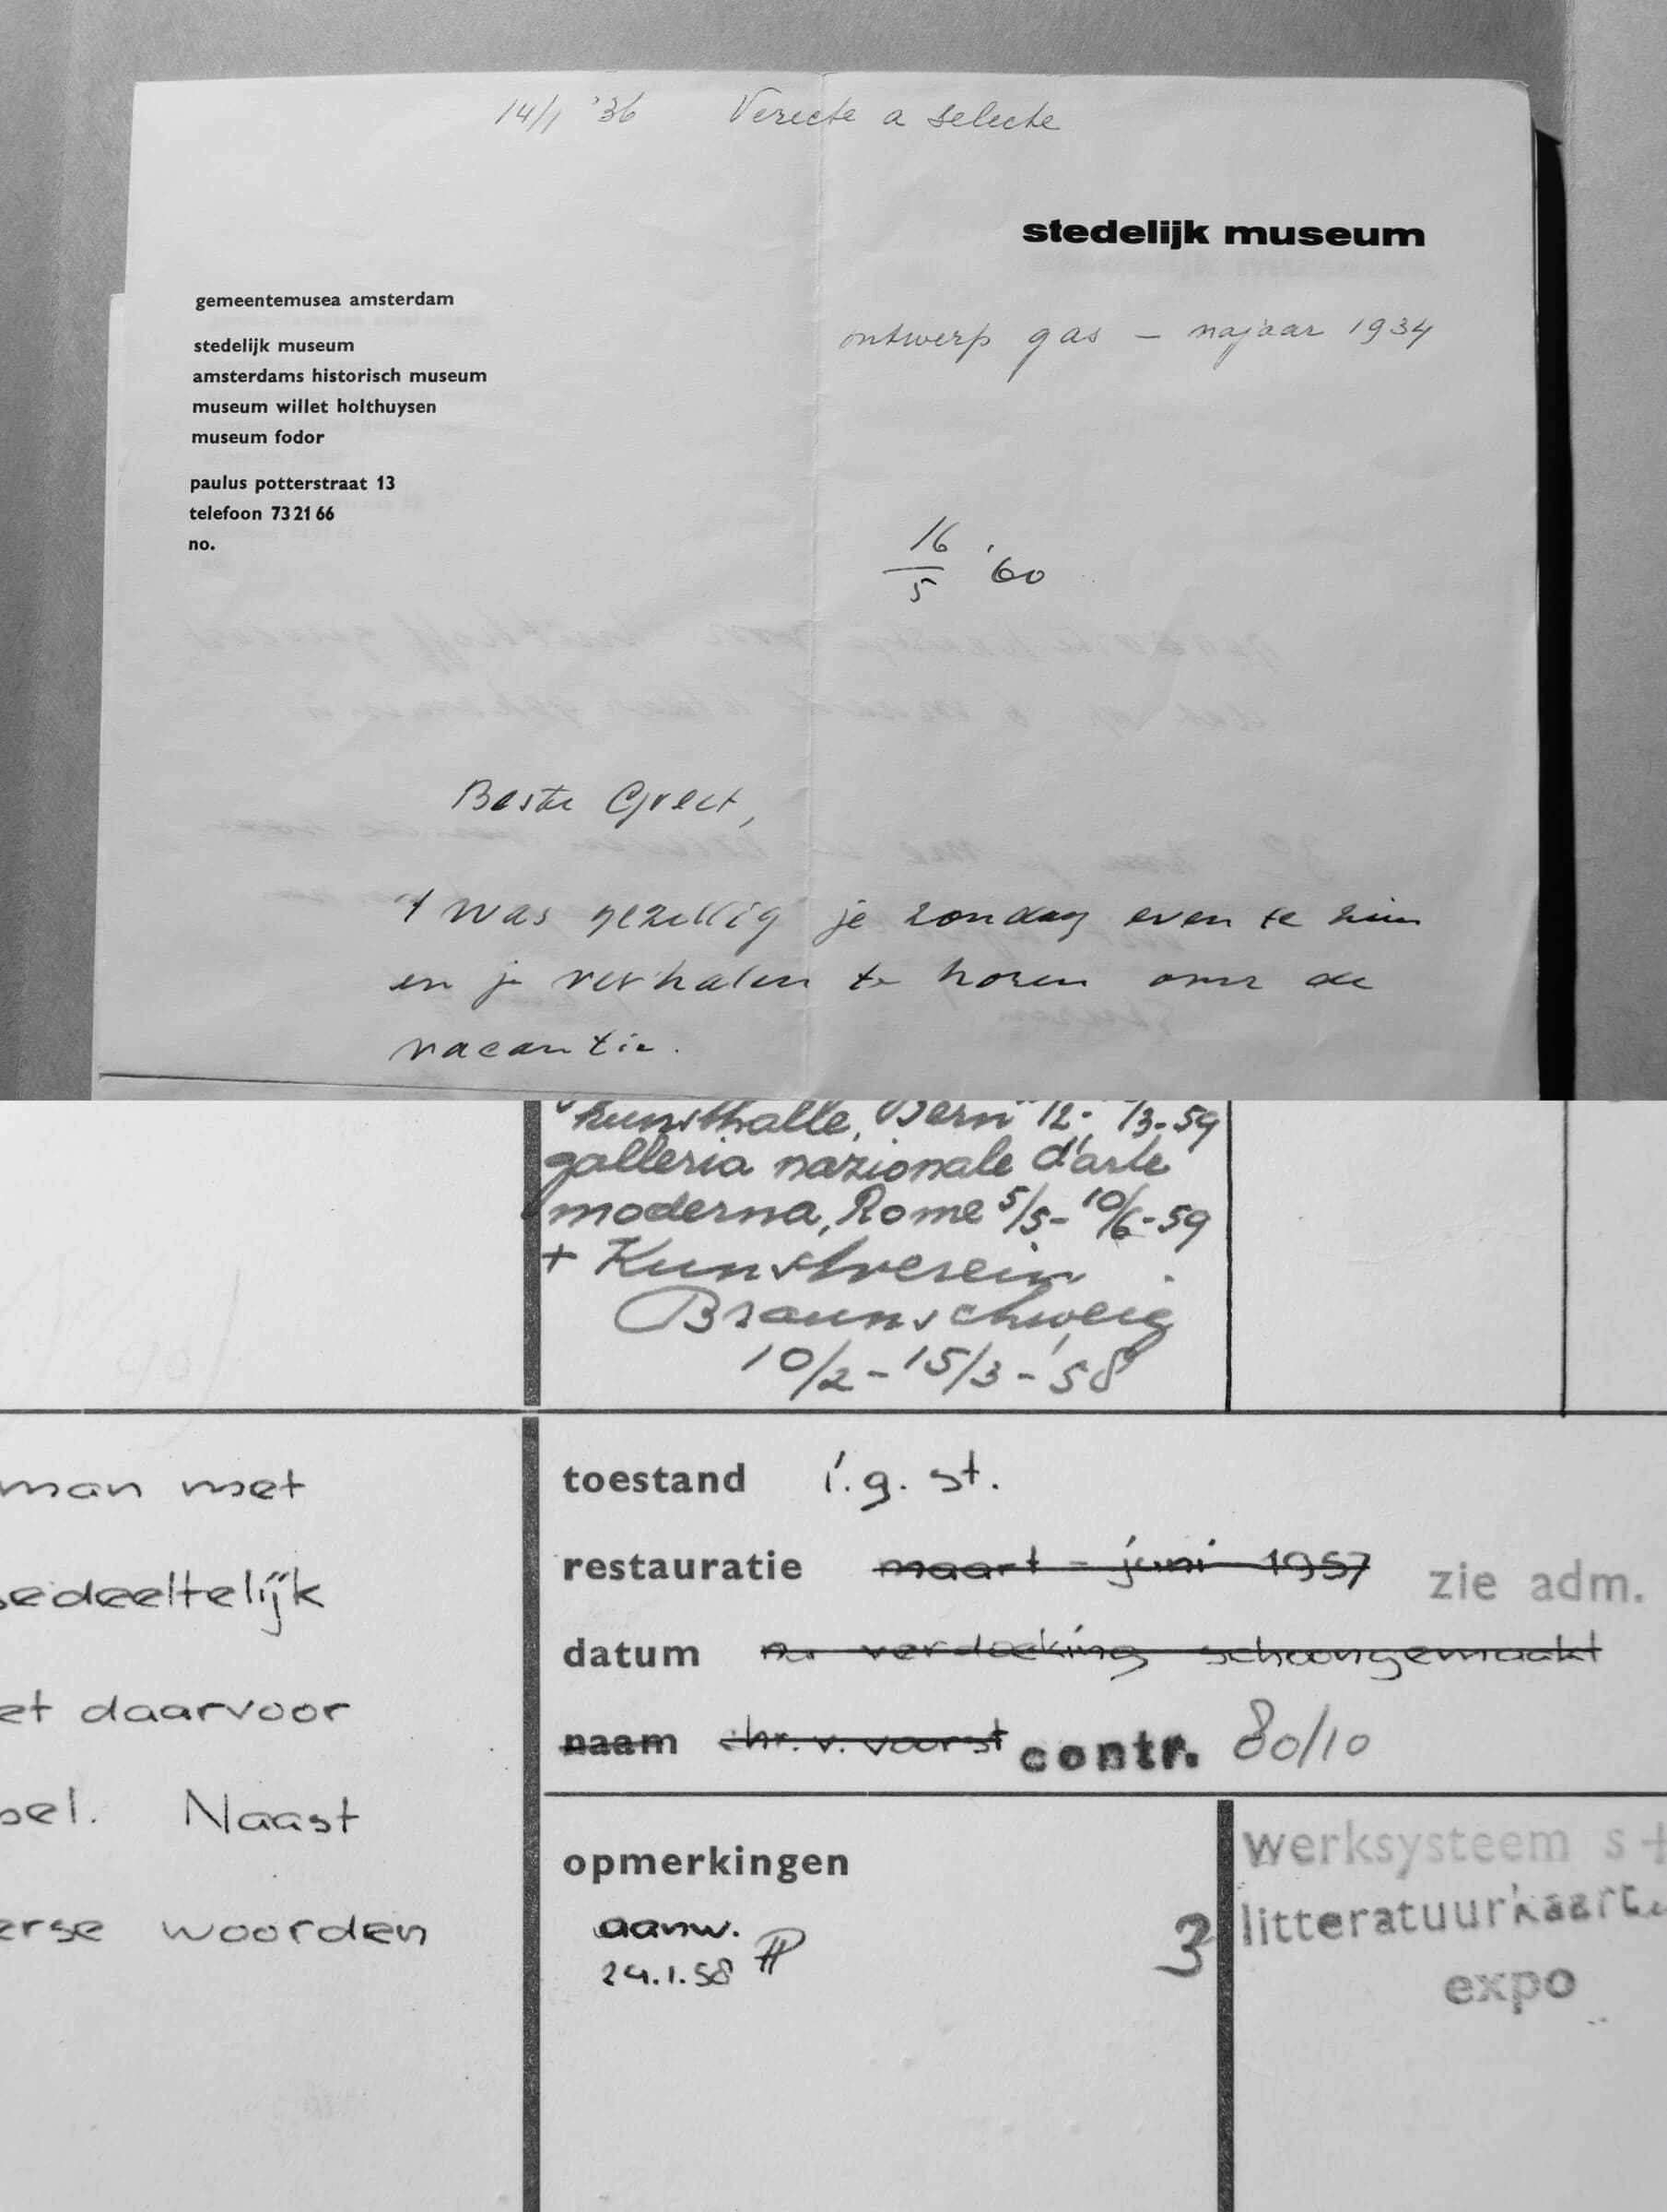 14/1 '36 Verecte a selecte
stedelijk museum
gemeentemusea amsterdam
stedelijk museum
amsterdams historisch museum
museum willet holthuysen
museum fodor
paulus potterstraat 13
telefoon 73 21 66
no.
ontwerp gas – najaar 1934
16/5 '60
Beste Greet,
't was gezellig je zondag even te zien
en je verhalen te horen over de
vacantie.
kunsthalle, Bern 12- /3-59
galleria nazionale d'arte
moderna, Rome 5/5- 10/6-59
+ Kunstverein
Braunschweig
10/2 - 15/3 - '58
man met
gedeeltelijk
et daarvoor
bel. Naast
erse woorden
toestand i.g. st.
restauratie maart - juni 1957 zie adm.
datum na verdoeking schoongemaakt
naam chr. v. voorst contr. 80/10
opmerkingen
aanw.
24.1.58
3
werksysteem s+
litteratuurkaart
expo